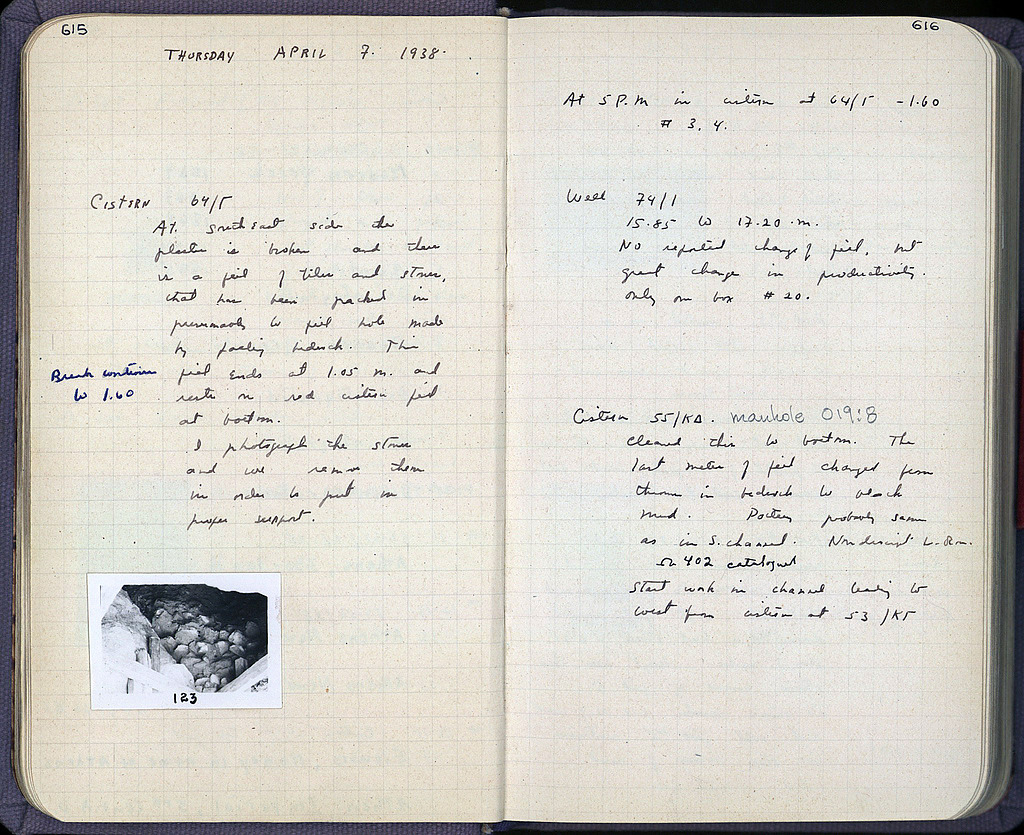 615
THURSDAY APRIL 7. 1938.
CISTERN 64/Γ
At southeast side the
plaster is broken and there
is a feil of tiles and stones,
that has been packed in
presumably to fill hole made
by bedrock. This
fill ends at 1.05 m. and
rests on red cistern fill
at bottom.
Break continues
to 1.60
I photograph the stones
and we remove them
in order to put in
proper support.
123
616
At 5 P.M in cistern at 64/Γ -1.60
# 3, 4.
Well 74/1
15.85 to 17.20 m.
No reported change of fill, but
great change in productivity.
only one box # 20.
Cistern 55/ΚΔ. manhole O19:8
cleaned this to bottom. The
last meter of fill changed from
in bedrock to black
mud. Pottery probably same
as in S. channel. Nondescript L-Rom.
402 catalogued
Start work in channel leading to
west from cistern at 53/ΚΓ